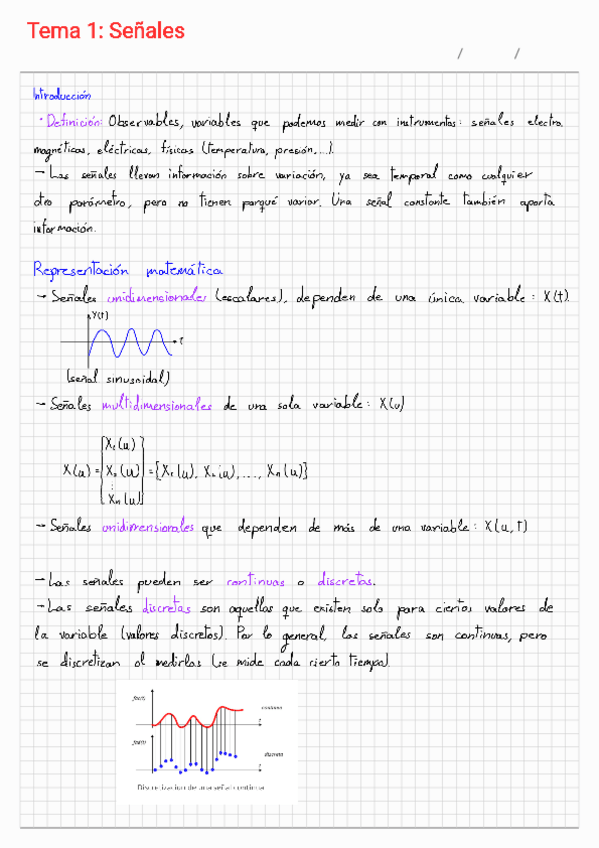 Tema 1: Señales
/ /
Introducción
· Definición: Observables, variables que podemos medir con instrumentos: señales electro
magnéticas, eléctricas, físicas (temperatura, presión,...).
- Las señales llevan información sobre variación, ya sea temporal como cualquier
otro parámetro, pero no tienen porqué variar. Una señal constante también aporta
información.
Representación matemática
→ Señales unidimensionales (escalares), dependen de una única variable: X(t).
Y(t)
t
(señal sinusoidal)
→ Señales multidimensionales de una sola variable: X(u)
X₁(u)
X(u) = X₂(u) = {X₁(u), X₂(u), ..., Xn(u)}
⋮
Xn(u)
→ Señales unidimensionales que dependen de más de una variable: X(u,t)
- Las señales pueden ser continuas o discretas.
- Las señales discretas son aquellas que existen solo para ciertos valores de
la variable (valores discretos). Por lo general, las señales son continuas, pero
se discretizan al medirlas (se mide cada cierto tiempo).
continua
t
discreta
t
Discretización de una señal continua